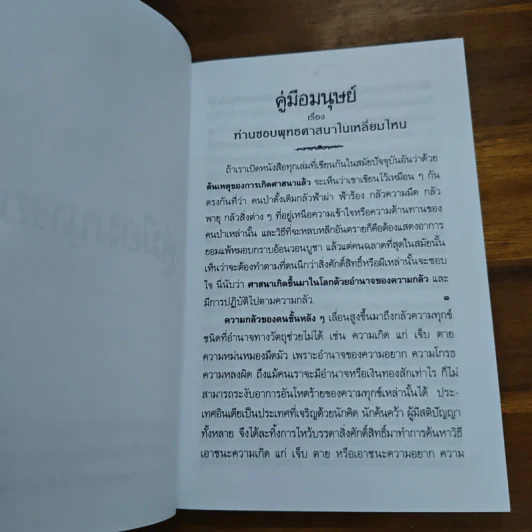 คู่มือมนุษย์
เรื่อง
ท่านชอบพุทธศาสนาในเหลี่ยมไหน
ถ้าเราเปิดหนังสือทุกเล่มที่เขียนกันในสมัยปัจจุบันอันว่าด้วย
ต้นเหตุของการเกิดศาสนาแล้ว จะเห็นว่าเขาเขียนไว้เหมือน ๆ กัน
ตรงกันที่ว่า คนป่าดั้งเดิมกลัวฟ้าผ่า ฟ้าร้อง กลัวความมืด กลัว
พายุ กลัวสิ่งต่าง ๆ ที่อยู่เหนือความเข้าใจหรือความต้านทานของ
คนป่าเหล่านั้น และวิธีที่จะหลบหลีกอันตรายก็คือต้องแสดงอาการ
ยอมแพ้หมอบกราบอ้อนวอนบูชา แล้วแต่คนฉลาดที่สุดในสมัยนั้น
เห็นว่าจะต้องทำตามที่ตนนึกว่าสิ่งศักดิ์สิทธิ์หรือผีเหล่านั้นจะชอบ
ใจ นี่นับว่า ศาสนาเกิดขึ้นมาในโลกด้วยอำนาจของความกลัว และ
มีการปฏิบัติไปตามความกลัว.
๑
ความกลัวของคนชั้นหลัง ๆ เลื่อนสูงขึ้นมาถึงกลัวความทุกข์
ชนิดที่อำนาจทางวัตถุช่วยไม่ได้ เช่น ความเกิด แก่ เจ็บ ตาย
ความหม่นหมองมืดมัว เพราะอำนาจของความอยาก ความโกรธ
ความหลงผิด ถึงแม้คนเราจะมีอำนาจหรือเงินทองสักเท่าไร ก็ไม่
สามารถระงับอาการอันโหดร้ายของความทุกข์เหล่านั้นได้ ประ-
เทศอินเดียเป็นประเทศที่เจริญด้วยนักคิด นักค้นคว้า ผู้มีสติปัญญา
ทั้งหลาย จึงได้ละทิ้งการไหว้บรรดาสิ่งศักดิ์สิทธิ์มาทำการค้นหาวิธี
เอาชนะความเกิด แก่ เจ็บ ตาย หรือเอาชนะความอยาก ความ